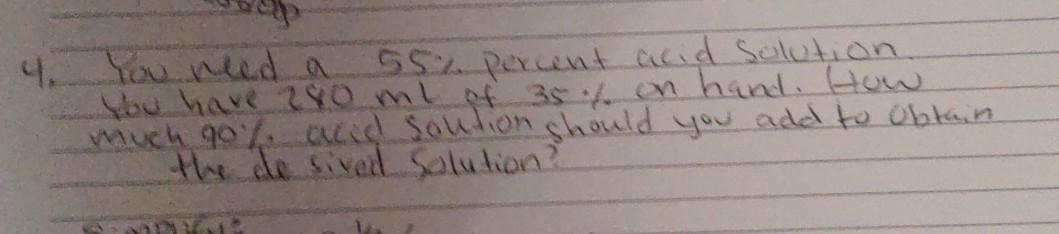 4. You need a 55% percent acid Solution.
You have 240 ml of 35% on hand. How
much 90% acid soution should you add to obtain
the de sired Solution?